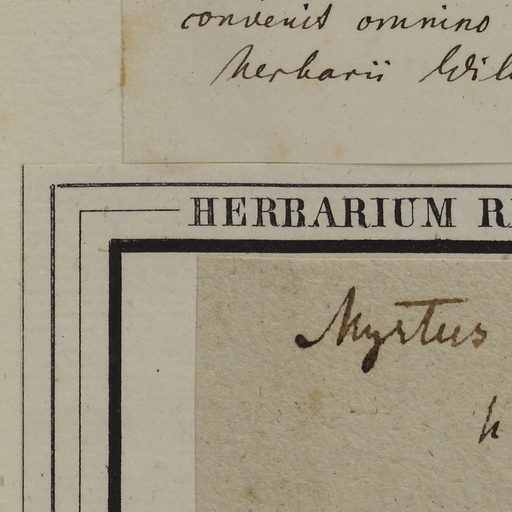 convenit omnino
herbarii Wil
HERBARIUM R
Myrtus